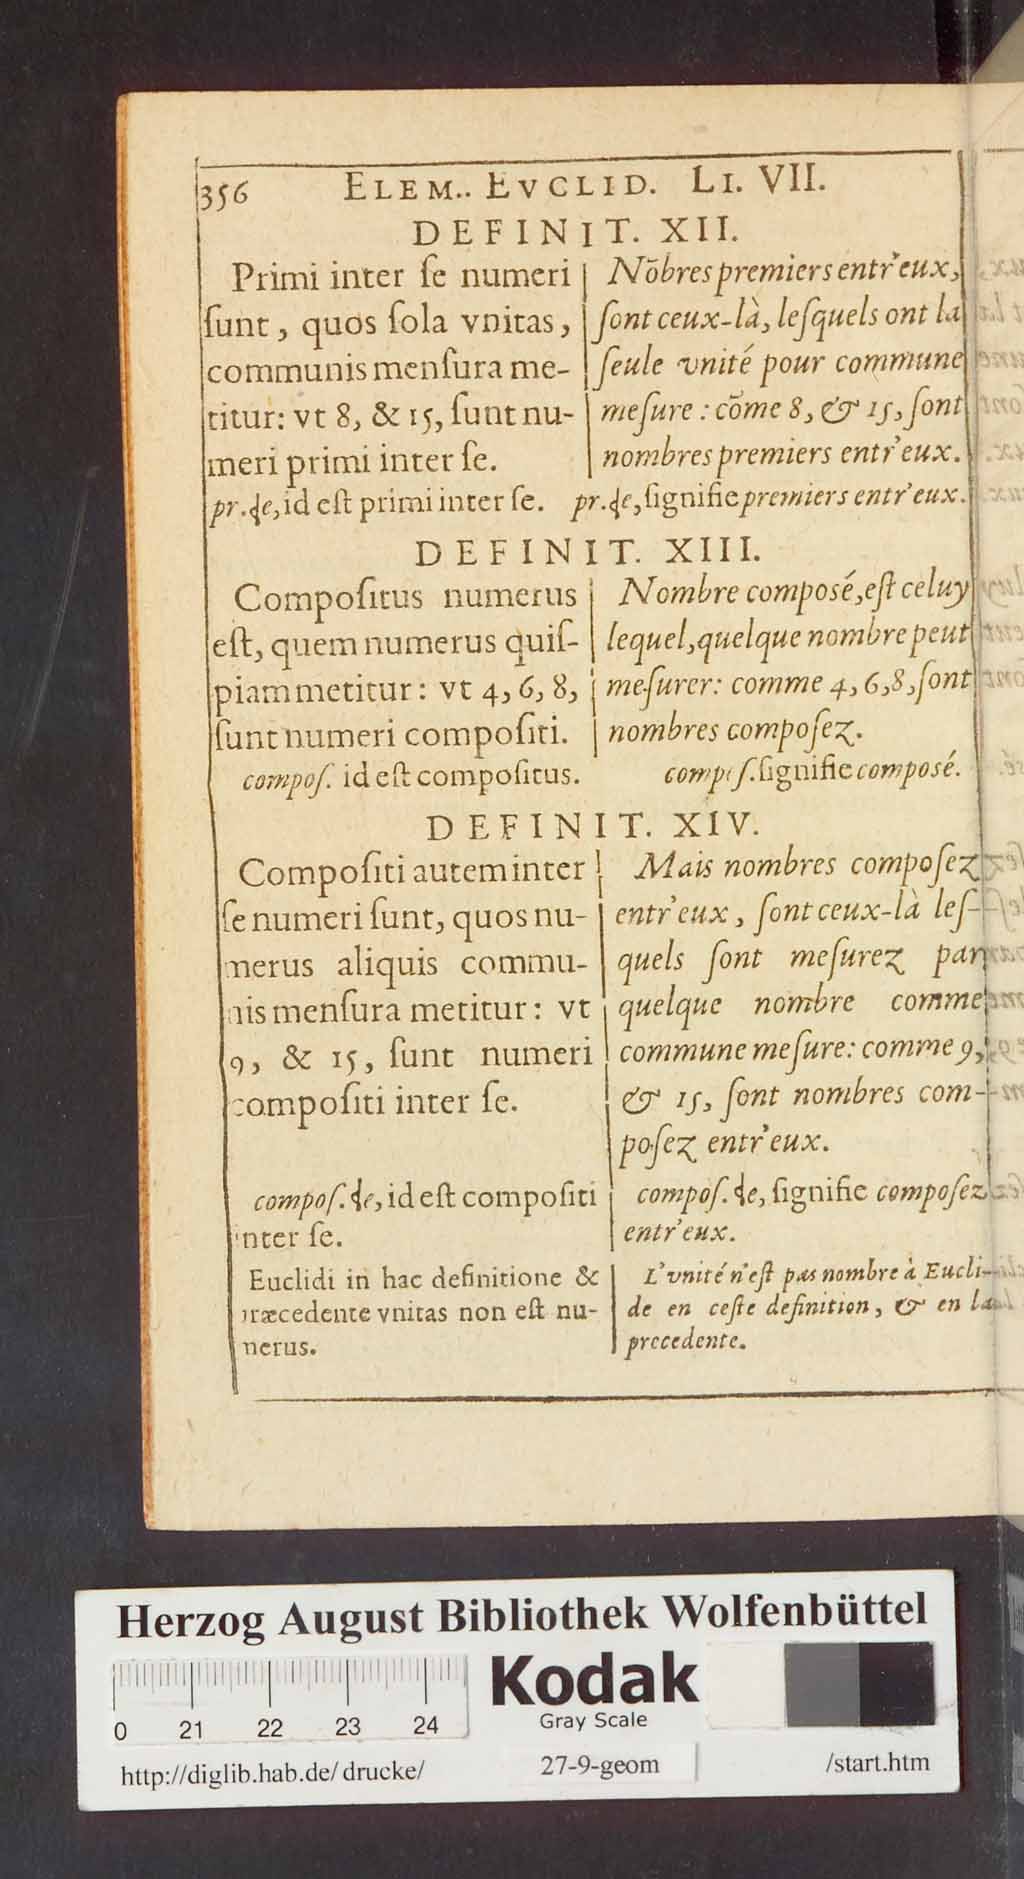 356 ELEM.. EVCLID. LI. VII.
DEFINIT. XII.
Primi inter ſe numeri
ſunt, quos ſola vnitas,
communis menſura me-
titur: vt 8, & 15, ſunt nu-
meri primi inter ſe.
pr. , id eſt primi inter ſe.
Nõbres premiers entr'eux,
ſont ceux-là, leſquels ont la
ſeule vnité pour commune
meſure : cõme 8, & 15, ſont
nombres premiers entr'eux.
pr. , ſignifie premiers entr'eux.
DEFINIT. XIII.
Compoſitus numerus
eſt, quem numerus quiſ-
piam metitur: vt 4, 6, 8,
ſunt numeri compoſiti.
compoſ. id eſt compoſitus.
Nombre composé, eſt celuy
lequel, quelque nombre peut
meſurer: comme 4, 6, 8, ſont
nombres compoſez.
compoſ. ſignifie composé.
DEFINIT. XIV.
Compoſiti autem inter
ſe numeri ſunt, quos nu-
merus aliquis commu-
nis menſura metitur: vt
9, & 15, ſunt numeri
compoſiti inter ſe.
compoſ. , id eſt compoſiti
inter ſe.
Euclidi in hac definitione &
præcedente vnitas non eſt nu-
merus.
Mais nombres compoſez
entr'eux, ſont ceux-là leſ-
quels ſont meſurez par
quelque nombre comme
commune meſure: comme 9,
& 15, ſont nombres com-
poſez entr'eux.
compoſ. , ſignifie compoſez
entr'eux.
L'vnité n'eſt pas nombre à Eucli-
de en ceſte definition, & en la
precedente.
Herzog August Bibliothek Wolfenbüttel
Kodak
Gray Scale
0 21 22 23 24
http://diglib.hab.de/drucke/ 27-9-geom /start.htm